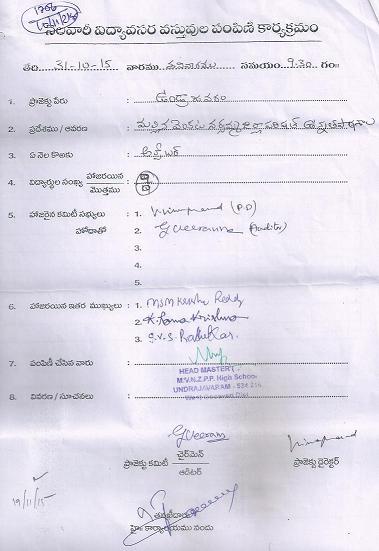 1766
19/11/15
నెలవారీ విద్యావసర వస్తువుల పంపిణి కార్యక్రమం
తేది. 31-10-15 వారము శనివారము సమయం 9.30 గం॥
1. ప్రాజెక్టు పేరు ఉండ్రాజవరం
2. ప్రదేశము / ఆవరణ
3. ఏ నెల కొఱకు అక్టోబర్
4. విద్యార్థుల సంఖ్య హాజరయిన
మొత్తము
5. హాజరైన కమిటీ సభ్యులు : 1. (P.D)
హోదాతో 2. G Veeranna (Auditor)
3.
4.
5.
6. హాజరయిన ఇతర ముఖ్యులు : 1. Reddy
2. K. Rama Krishna
3. S.V.S.
7. పంపిణీ చేసిన వారు
HEAD MASTER
M.V.N.Z.P.P. High School
UNDRAJAVARAM - 534 216
West Godavari Dist
8. వివరణ / సూచనలు
G Veeranna
ప్రాజెక్టు కమిటీ చైర్‌మెన్
ఆడిటర్
ప్రాజెక్టు డైరెక్టర్
19/11/15
హై॥ కార్యాలయము నందు